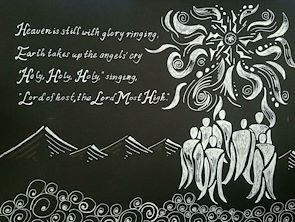 Heaven is still with glory ringing,
Earth takes up the angels' cry
"Holy, Holy, Holy," singing,
"Lord of host, the Lord Most High."